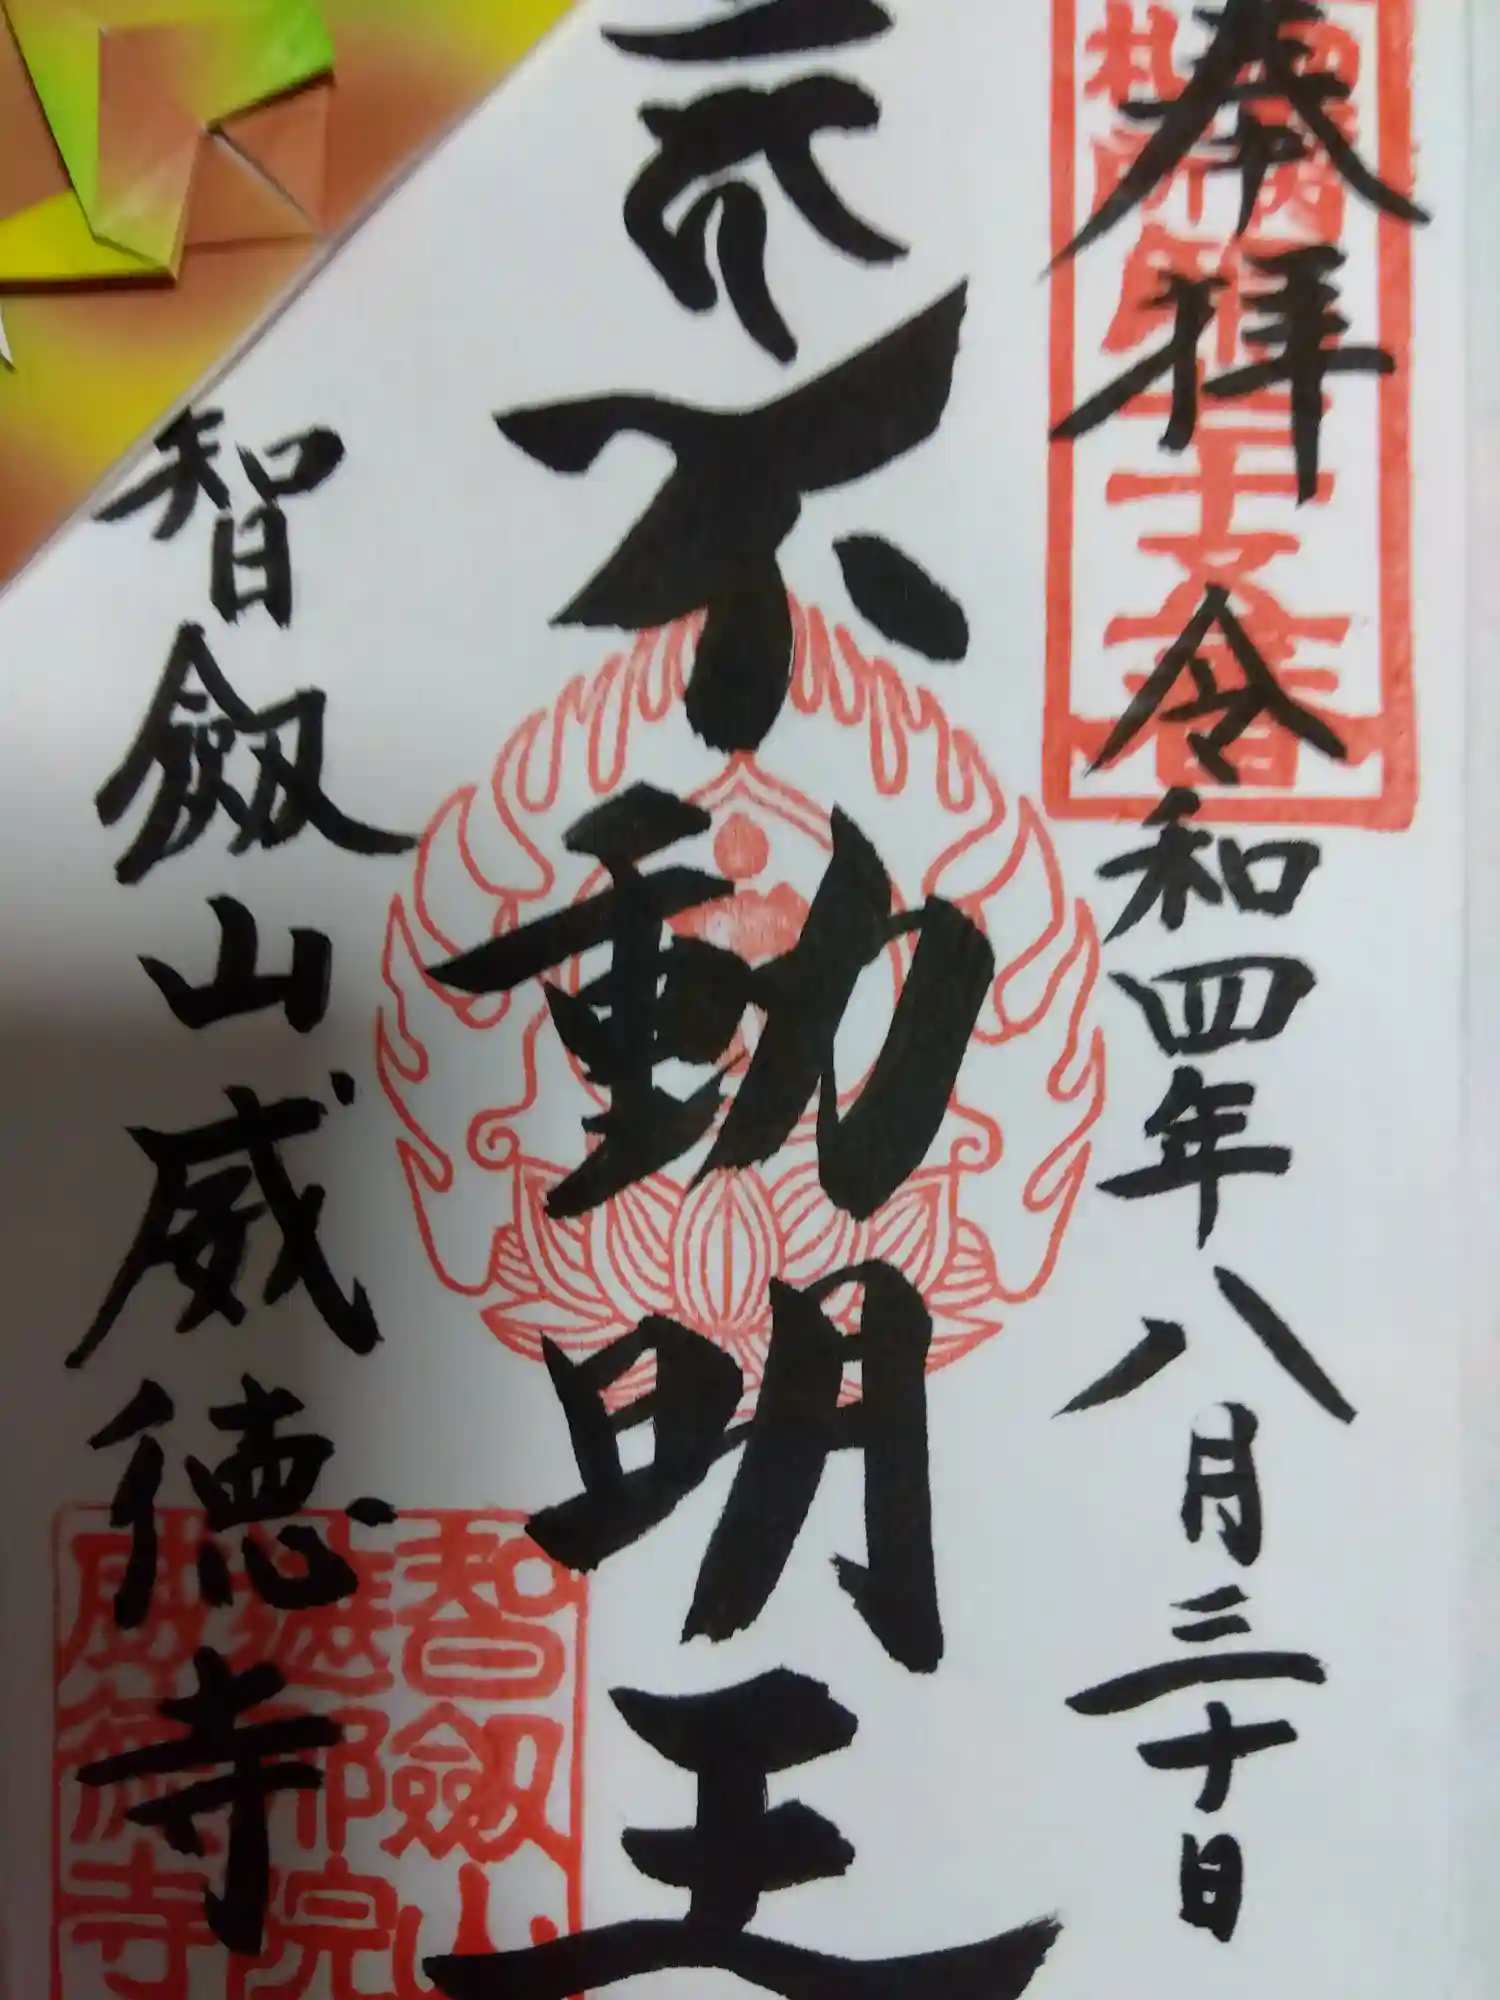 奉拝 令和四年八月三十日
不動明王
智劔山威徳寺
智劔山
遮那院
威德寺